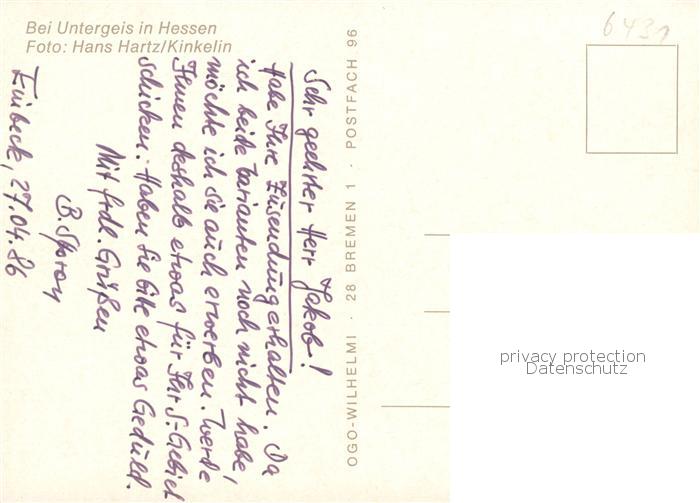 Bei Untergeis in Hessen
Foto: Hans Hartz/Kinkelin
Sehr geehrter Herr Jakob!
Habe Ihre Zusendung erhalten. Da
ich beide Varianten noch nicht habe,
möchte ich sie auch erwerben. Werde
Ihnen deshalb etwas für Ihr S-Gebiet
schicken. Haben Sie bitte etwas Geduld.
Mit frdl. Grüßen
B.
Einbeck, 27.04.86
OGO-WILHELMI · 28 BREMEN 1 · POSTFACH 96
6431
privacy protection
Datenschutz